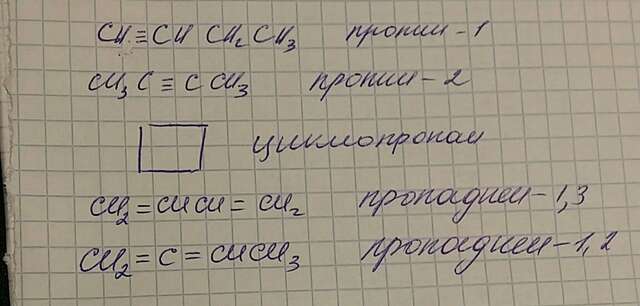 CH≡CH CH₂CH₃ пропин-1
CH₃C≡CCH₃ пропин-2
циклопропан
CH₂=CHCH=CH₂ пропадиен-1,3
CH₂=C=CHCH₃ пропадиен-1,2